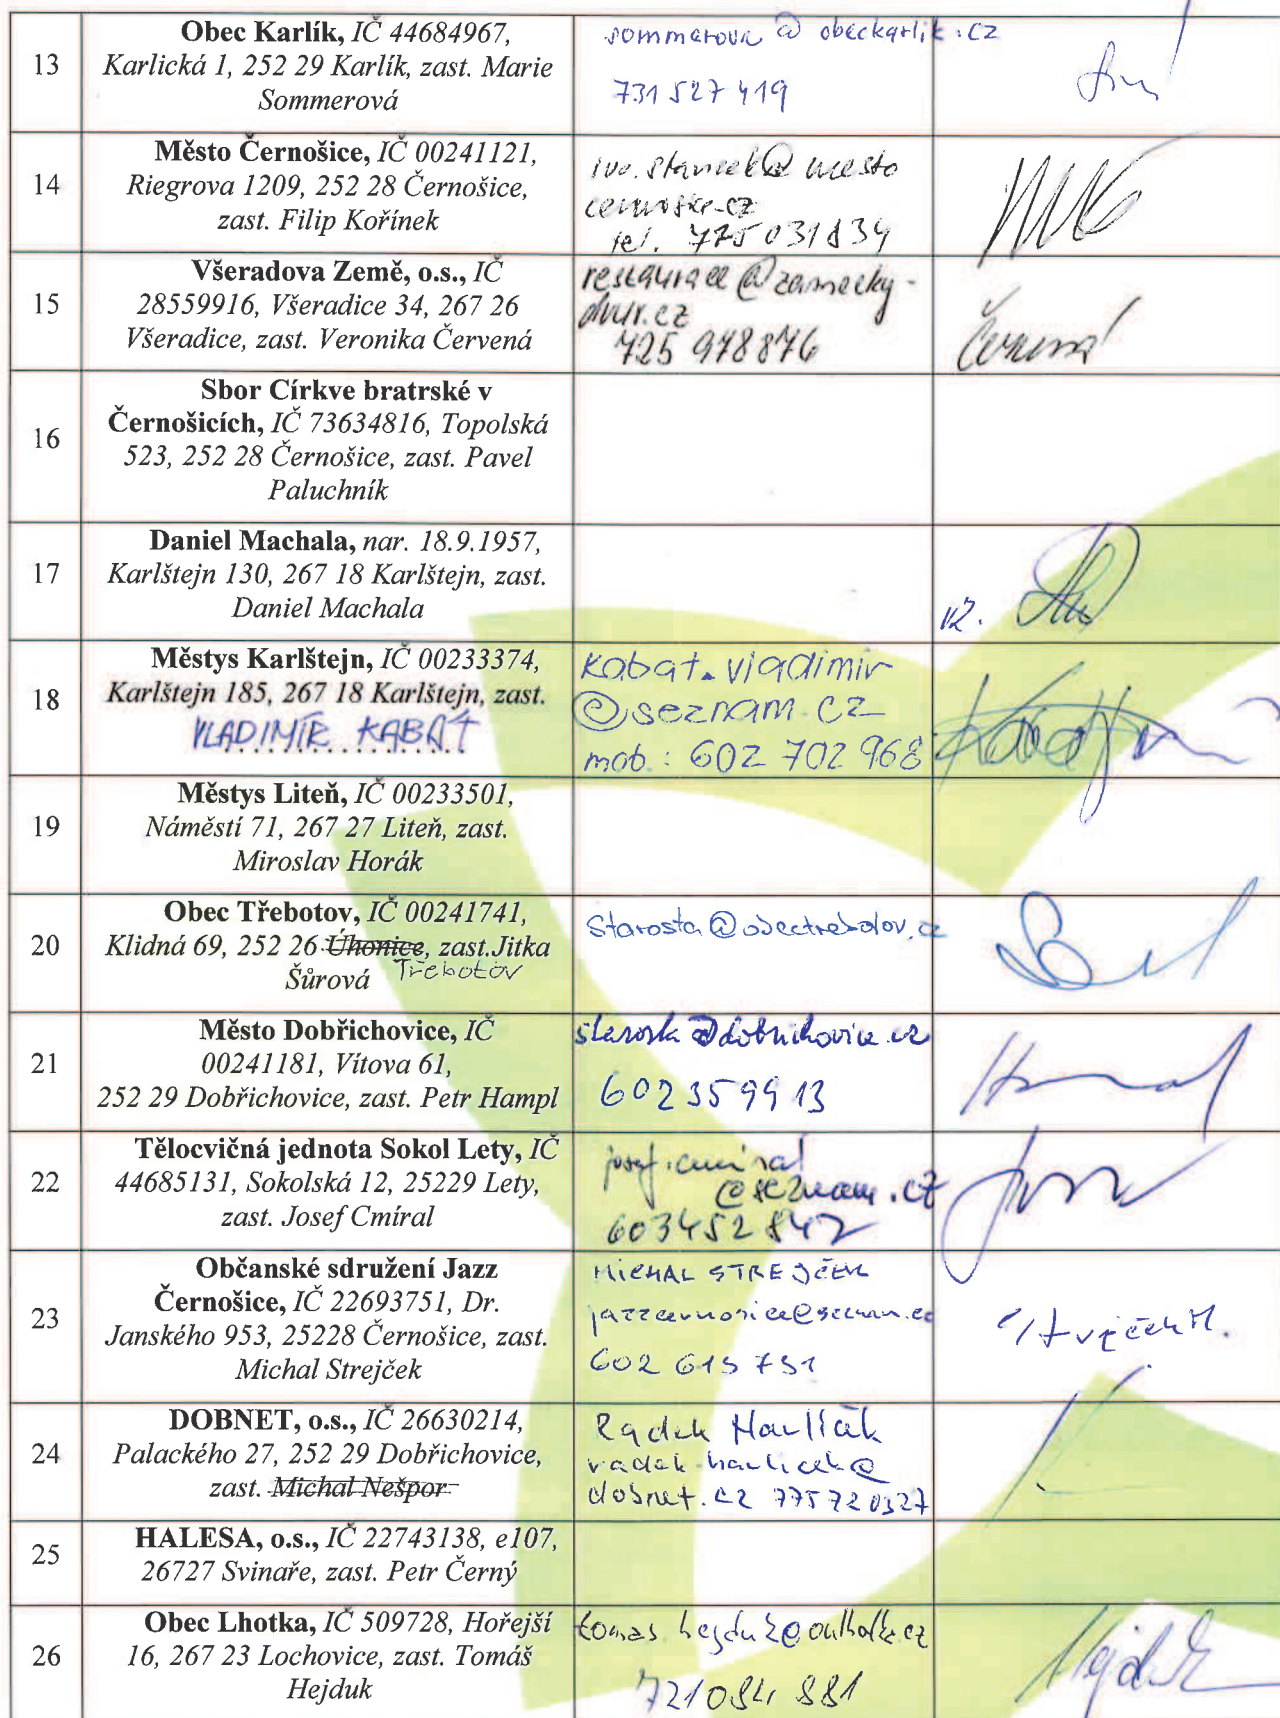 13
Obec Karlík, IČ 44684967,
Karlická 1, 252 29 Karlík, zast. Marie
Sommerová
sommerova @ obeckarlik.cz
731 527 419
14
Město Černošice, IČ 00241121,
Riegrova 1209, 252 28 Černošice,
zast. Filip Kořínek
@ mesto
tel. 775 031 834
15
Všeradova Země, o.s., IČ
28559916, Všeradice 34, 267 26
Všeradice, zast. Veronika Červená
restaurace@zamecky-
dvur.cz
725 978876
Červená
16
Sbor Církve bratrské v
Černošicích, IČ 73634816, Topolská
523, 252 28 Černošice, zast. Pavel
Paluchník
17
Daniel Machala, nar. 18.9.1957,
Karlštejn 130, 267 18 Karlštejn, zast.
Daniel Machala
18
Městys Karlštejn, IČ 00233374,
Karlštejn 185, 267 18 Karlštejn, zast.
VLADIMÍR KABÁT
kabat.vladimir
@seznam.cz
mob.: 602 702 968
19
Městys Liteň, IČ 00233501,
Náměstí 71, 267 27 Liteň, zast.
Miroslav Horák
20
Obec Třebotov, IČ 00241741,
Klidná 69, 252 26 Úhonice, zast.Jitka
Šůrová Třebotov
starosta@obectrebotov.cz
21
Město Dobřichovice, IČ
00241181, Vítova 61,
252 29 Dobřichovice, zast. Petr Hampl
starosta@dobrichovice.cz
602 359913
22
Tělocvičná jednota Sokol Lety, IČ
44685131, Sokolská 12, 25229 Lety,
zast. Josef Cmíral
josef.cmiral
@seznam.cz
603452842
23
Občanské sdružení Jazz
Černošice, IČ 22693751, Dr.
Janského 953, 25228 Černošice, zast.
Michal Strejček
MICHAL STREJČEK
jazzcernosice@seznam.cz
602 615 751
Strejček M.
24
DOBNET, o.s., IČ 26630214,
Palackého 27, 252 29 Dobřichovice,
zast. Michal Nešpor
Radek Havlíček
radek.havlicek@
dobnet.cz 775720327
25
HALESA, o.s., IČ 22743138, e107,
26727 Svinaře, zast. Petr Černý
26
Obec Lhotka, IČ 509728, Hořejší
16, 267 23 Lochovice, zast. Tomáš
Hejduk
721084 881
Hejduk